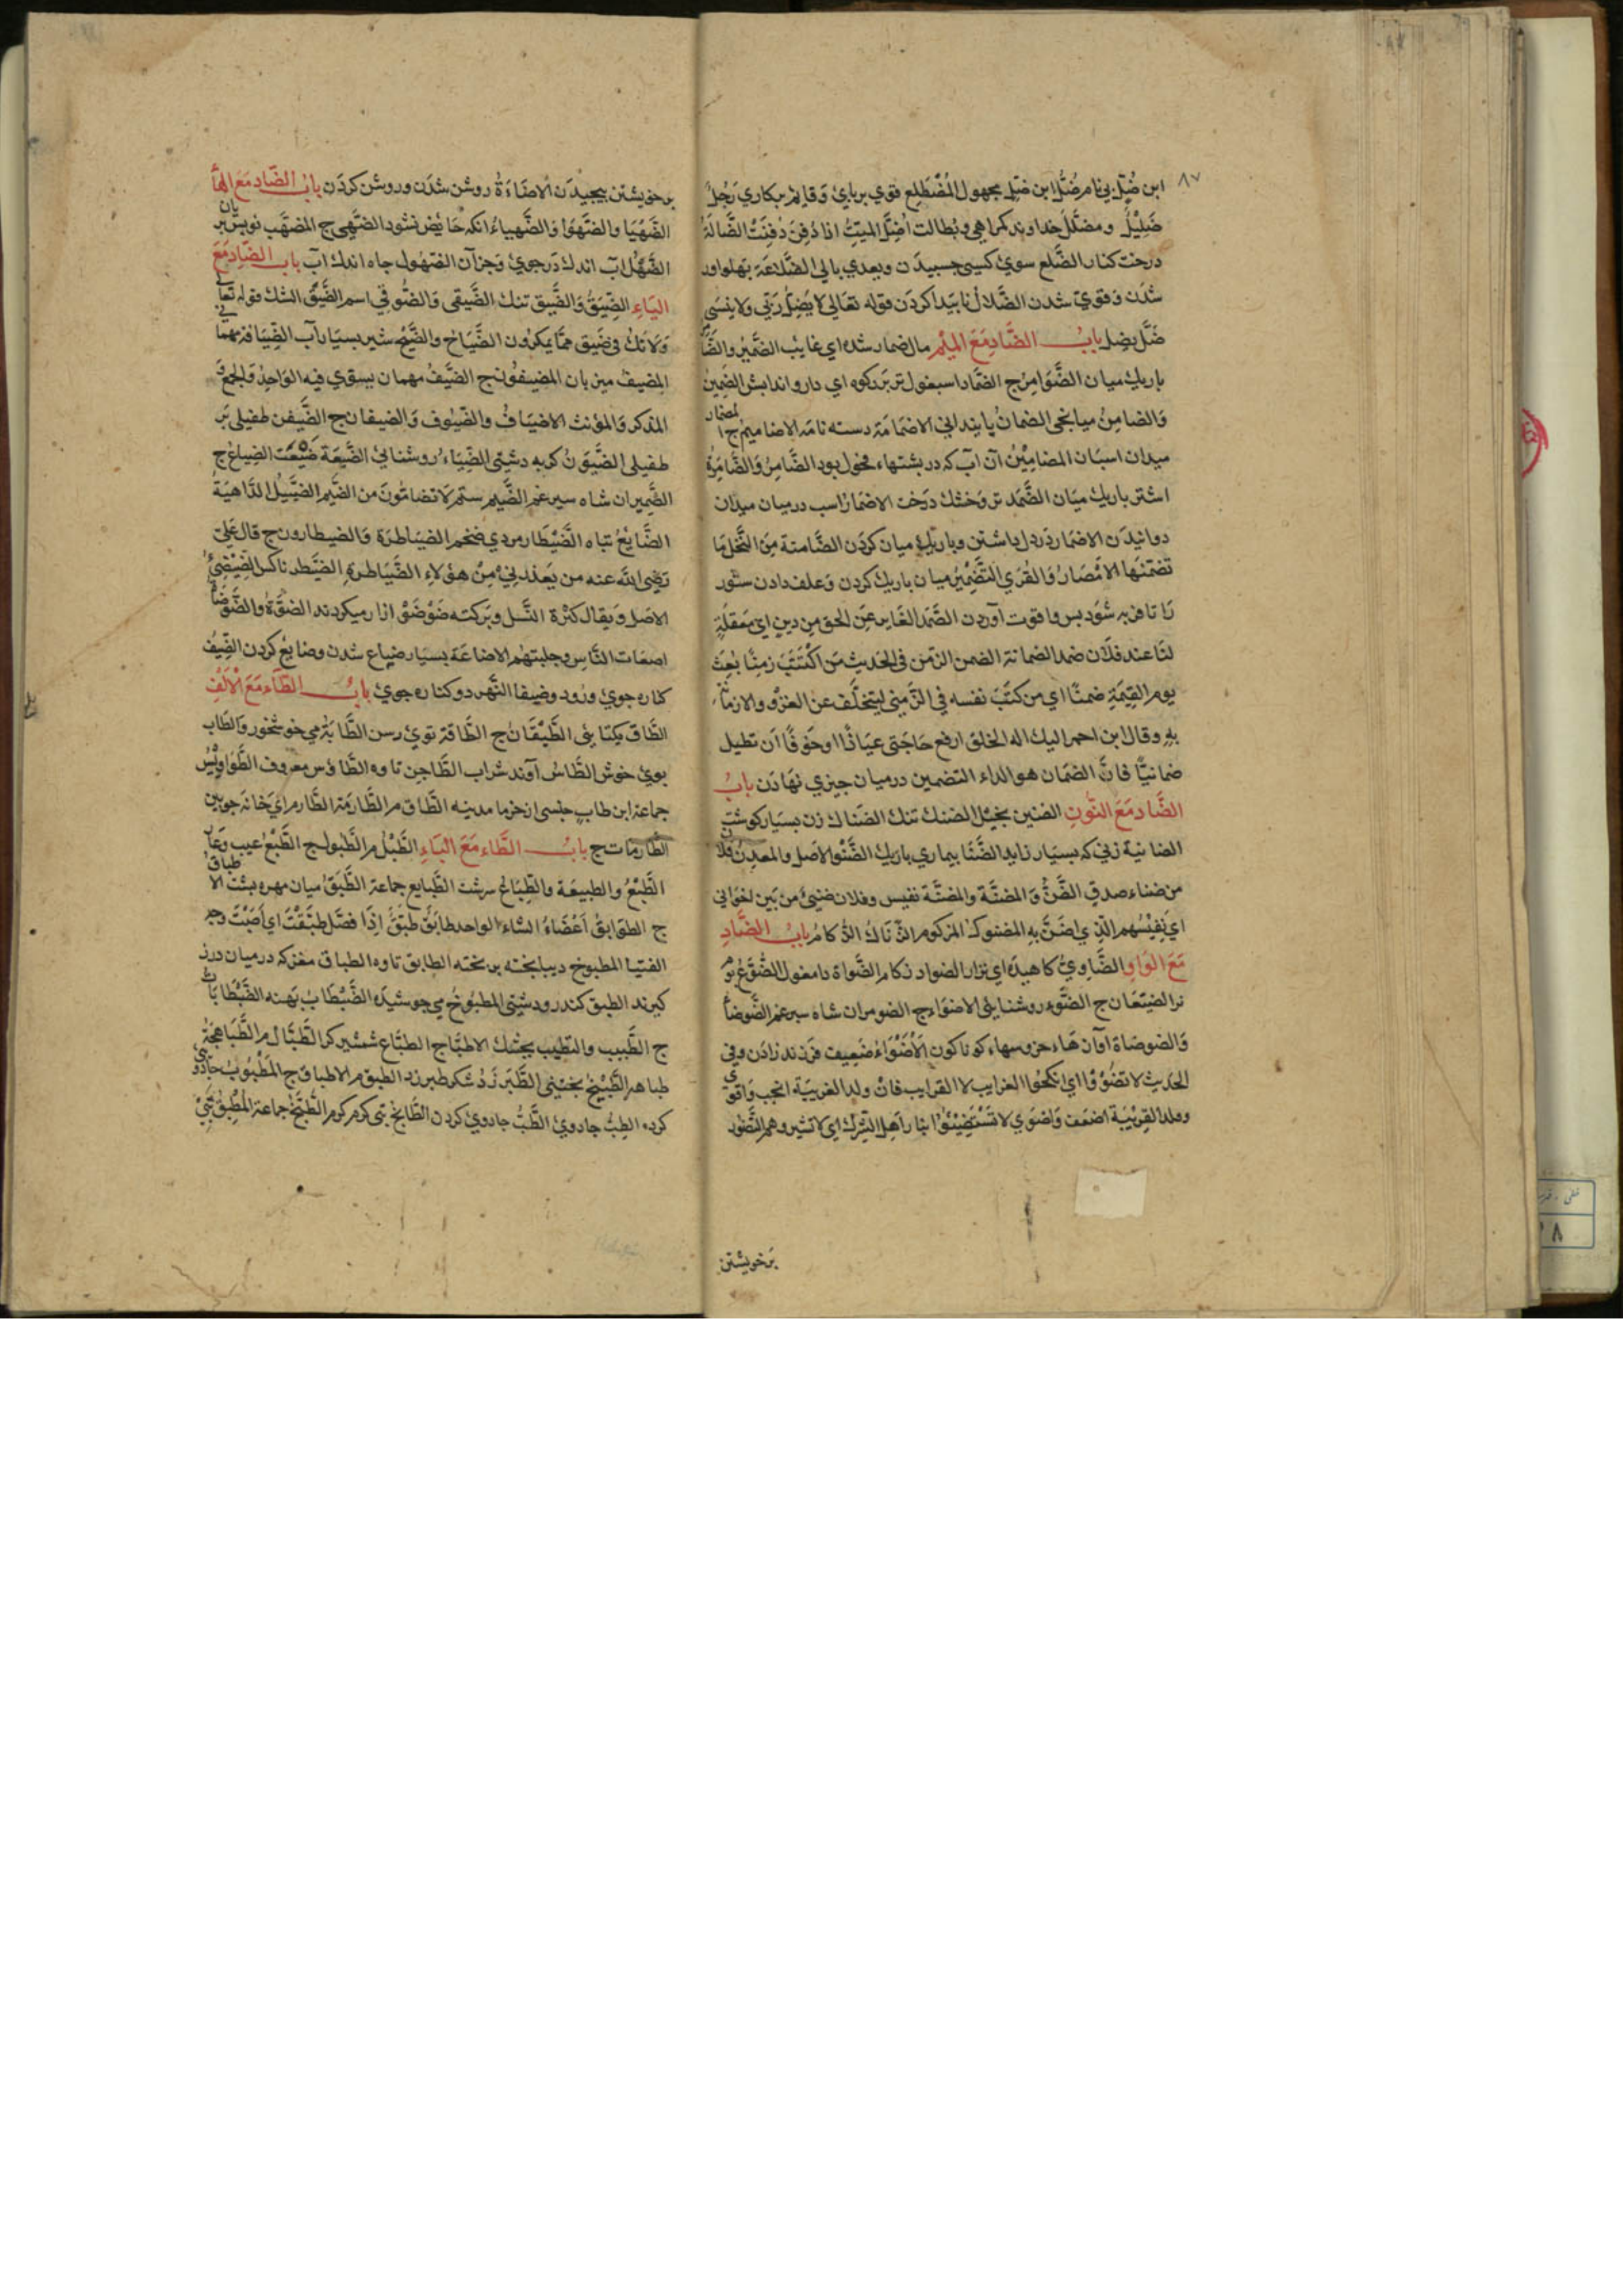 ٨٧
ابن ضُلٍّ بی نام ضُلُّ ابن ضلٍّ مجهول المُضْطَلِع قوی بر باری وَقایم بر کاری رَجُلٌ
ضَلِیْلٌ ومضلَّلٌ خداوند کمراهی وبُطالت اُضِلَّ المیتُ اذا دُفِنَ دُفِنَتْ الضَّالَةُ
درخت کنار الضَّلع سوی کسی جسبیدن ویعدی بالی الضَّلاعَة بهلواور
شدَن وَقویّ شدن الضَّلالُ نابَیدا کردَن قوله تعَالی لا یَضِلُّ رَبّی ولا ینسَی
ضَلَّ یضِل بابُ الضَّادِ مَعَ المیْمِ مال ضمار شده ای غایب الضَّمِیرُ والضَّا
باریك میان الضَّوَامِرُ ج الضمَّاد اسبغول تر بَر کوه ای دارو اندابش الضَمِینُ
وَالضامِنُ میانجی الضمانُ پایندانی الاضمَامَة دسته نامَه الاضامیم ج ا
لمضمار
میدان اسبَان المضامِیْنُ آن آب که در بشتهاء فحول بود الضَّامِرُ وَالضَّامِرَةُ
اشتر باریك میَان الضَّمَد تر وَخشك درَخت الاضمَارُ اسب در میان میدان
دوانیدَن الاضمَار دَر دل داشتن وباریك میان کردَن الضَّامنة مِنَ النَّخل مَا
تضمّنَها الامْصَارُ وَالقُرَی التَّضْمِیْرُ میان باریك کردن وَعلف دادن ستور
رَا تا فربه شوَد بس وا قوت آوردن الضَّمَد الغَابر عَنِ الحق مِن دینٍ ایْ مَعقلَةٍ
لنَا عند فلان ضمد الضمانة الضمن الزمن فی الحَدیث مَن اکْتَتَبَ زمِنًا بُعِثَ
یوم القِیٰمَةِ ضمنًا ای من کتَبَ نفسه فی الزَّمنی لیتخلّف عن الغزْو والازمَانُ
بهِ وقال ابن احمر الیك اله الخلق ارفع حَاجَتی عیَاذًا وخَوفًا اَن تطیل
ضمانیًا فانَّ الضمَان هو الداء التضمین در میان جیزی نهَادَن بابُ
الضَّاد مَعَ النُّونِ الضنین بخیْل الضنك تنك الضَناك زن بسیَار کوشتِ
الضانیة زنی که بسیَار زاید الضَّنَا بیماری باریك الضَّنْو الاصَل والمعدِنُ فلا
من ضناء صدقٍ الضَّنُّ وَالمضنَّة والمضنَّة نفیس وفلان ضنیّ من بَین اخوَانی
ای نَفِیْسُهم الّذِی اضَنَّ بهِ المضنوك المزکوم الضُّنَاكُ الزُّکامُ بابُ الضَّادِ
مَعَ الوَاوِ الضَّاوِیُّ کاهیدَه ای نزار الضواد زکام الضَّواة دامغول الضُّوَعُ بُومِ
نر الضیعَان ج الضَّوء روشنایی الاضوَاء ج الضومران شاه سبرغم الضَّوضَاءُ
وَالضوضاة آوان هَاء خروسهاء کوناکون الاَضْوَاءُ ضَعِیف فرَزند زادَن وفی
الحَدیثِ لا تضْوُوْا ای انکحُوا الغرایب لا القرایب فانّ ولد الغریبَة انجب وَاقوی
وولد القرِیْبَة اضعَف وَاضوَی لا تَسْتَضِیْئُوْا بنَارِ اَهل الشِّرْك ای لا تشیروهم التَّضَوّر
بَرخویشتن
بر خویشتن بیجیدَن الاضَاءَةُ روشن شدَن وروشن کردَن بابُ الضَّاد مَعَ الهَاء
الضَّهْیَا والضَّهْوَا وَالضَّهیاءُ انکه حَایض نشود الضُّهی ج المضهَّب نوبس بر
یان
الضَّهْل آب اندك دَر جوی وَجز آن الضهُول جاه اندك آب باب الضَّاد مَعَ
الیَاءِ الضِّیَقُ وَالضَّیق تنك الضَّیقی وَالضُّوقی اسم الضَّیِّق الشك قوله تعَالی
وَلا تَكُ فی ضَیق ممَّا یمکرُون الضَّیَاح والضَّیْح شیر بسیَار آب الضِّیَافة مهما نی
المضیفُ میزبان المضیفُون ج الضَّیْفُ مهمان یستوی فیه الوَاحِدُ وَالجَمعُ وَ
المذکر وَالمؤنث الاضیَافُ والضُّیُوف وَالضیفان ج الضَّیفَن طفیلی بَر
طفیلی الضَّیوَنُ کربه دشتی الضِّیَاء روشنایی الضَّیعَة ضیْعَت الضِیاعُ ج
الضَّیمران شاه سبر غم الضَّیم ستم لا تضامُّونَ من الضَّیم الضَّئِیلُ الدَّاهیَة
الضَّایعُ تباه الضَّیْطَار مردی ضخم الضیَاطرَة وَالضیطارون ج قال عَلیّ
رَضِی اللّه عنه من یَعذرنِیْ مِنْ هٰؤلاءِ الضَّیَاطرةِ الضیَّطر ناکس الضِّیْضِئُ
الاصَل وَیقال کثرة النَّسل وبَرکته ضَوْضَوْ ازار میکردند الضوَّةُ والضَّوْضَاُ
اصعَات النَّاسِ وجلبتهُم الاضاعَة بسیَار ضیاع شدن وضایعْ کردن الضِّیْفُ
کناره جویْ ورُود وضیفا النَّهر دو کناره جویْ بابُ الطَّاء مَعَ الْاَلفِ
الطَّاق یکتایی الطِّیْقَانُ ج الطَّاقة توئ رسن الطَّابَة می خوشخور وَالطَّاب
بویْ خوش الطَّاسُ آوند شراب الطَّاجن تاوه الطَّاؤس معروف الطَّوَاوِیْسُ
جماعة ابن طابٍ جنسی از خرما مدینه الطَّاق م الطَّارمَة الطَّارم اَیْ خَانه جوبین
الطَّارمَات ج بابُ الطَّاءِ مَعَ البَاءِ الطَّبْلُ م الطُّبول ج الطَّبْعُ عیب وَعَار
الطَّبْعُ والطبیعَة والطِّبَاعُ سرشت الطَّبایع جماعة الطَّبَقُ میان مهره بشت الا
طباقُ
ج الطوَابقُ اَعْضَاءُ الشاء الواحد طابَق طبَّقَ اِذَا فصَّل طبَّقْتَ ای اَصَبْتَ وجه
الفتیا المطبوخ دیبا بخته بر بخته الطابق تاوه الطباق مغز که در میان درز
کیرند الطبق کندر رود شتی المطبوُخُ می جوشیدَه الضَّبْطَابُ بَهنه الضَّبْطَابَاتُ
ج الطَّبیب والتطیب بجشك الاطبَّاء ج الطبَّاع شمشیر کر الطَّبَّال م الطَّبَاهجَةُ
طباهه الطَّبِیْخُ بختنی الطَّبَر زَدُ شکر طبر زد الطبق م الاطباق ج المَطْبُوبُ جادُو
کرده الطِبُّ جادویْ الطَّبُّ جادویْ کردن الطَّابخُ تبی کرم کرم الطَّبَّخُ جماعة المُطْبِقُ